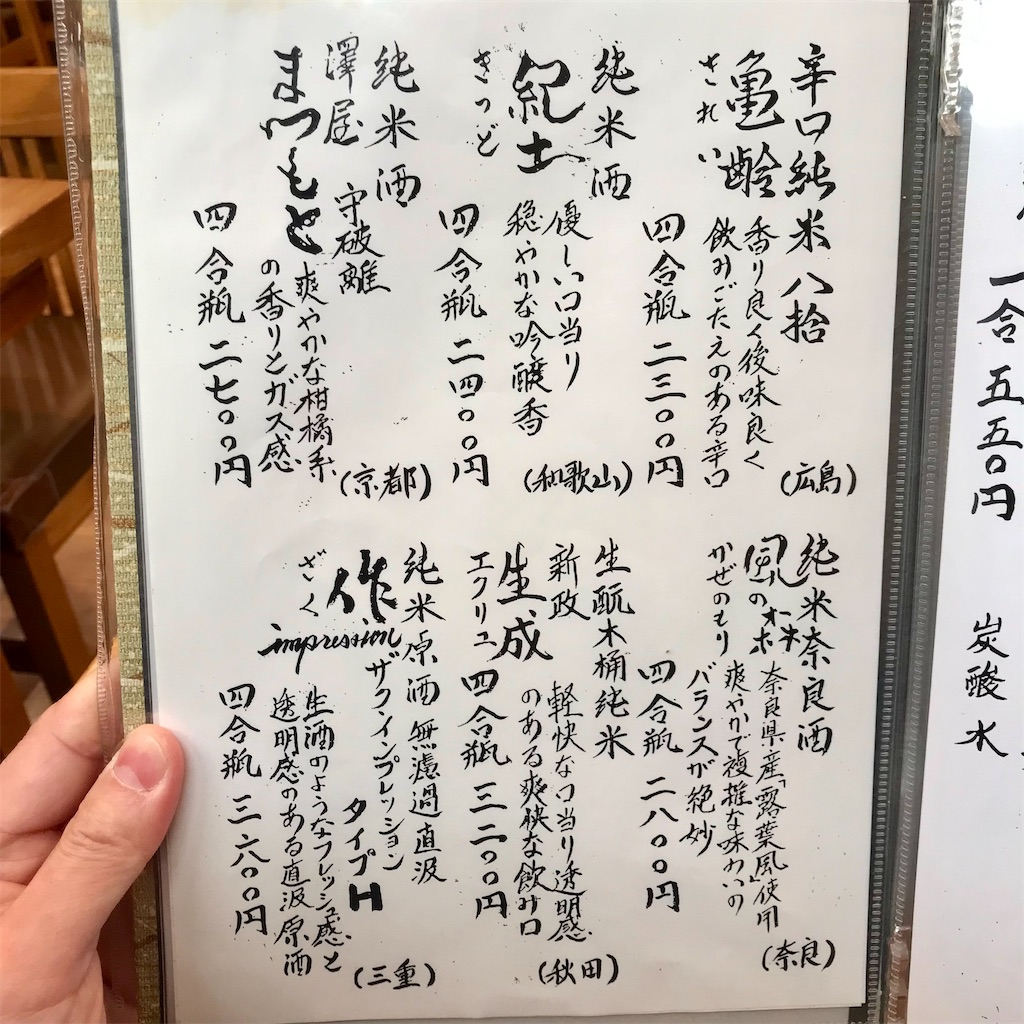 辛口純米八拾
亀齢
きれい
香り良く後味良く
飲みごたえのある辛口
四合瓶 二三〇〇円
(広島)
純米酒
紀土
きっど
優しい口当り
穏やかな吟醸香
四合瓶 二四〇〇円
(和歌山)
純米酒
澤屋
まつもと
守破離
爽やかな柑橘系
の香りとガス感
四合瓶 二七〇〇円
(京都)
純米奈良酒
風の森
かぜのもり
奈良県産「露葉風」使用
爽やかで複雑な味わいの
バランスが絶妙
四合瓶 二八〇〇円
(奈良)
生酛木桶純米
新政
生成
エクリュ
軽快な口当り透明感
のある爽快な飲み口
四合瓶 三二〇〇円
(秋田)
純米原酒 無濾過直汲
作
ざく
impression
ザクインプレッション
タイプH
生酒のようなフレッシュ感と
透明感のある直汲原酒
四合瓶 三六〇〇円
(三重)
一合 五五〇円
炭酸水